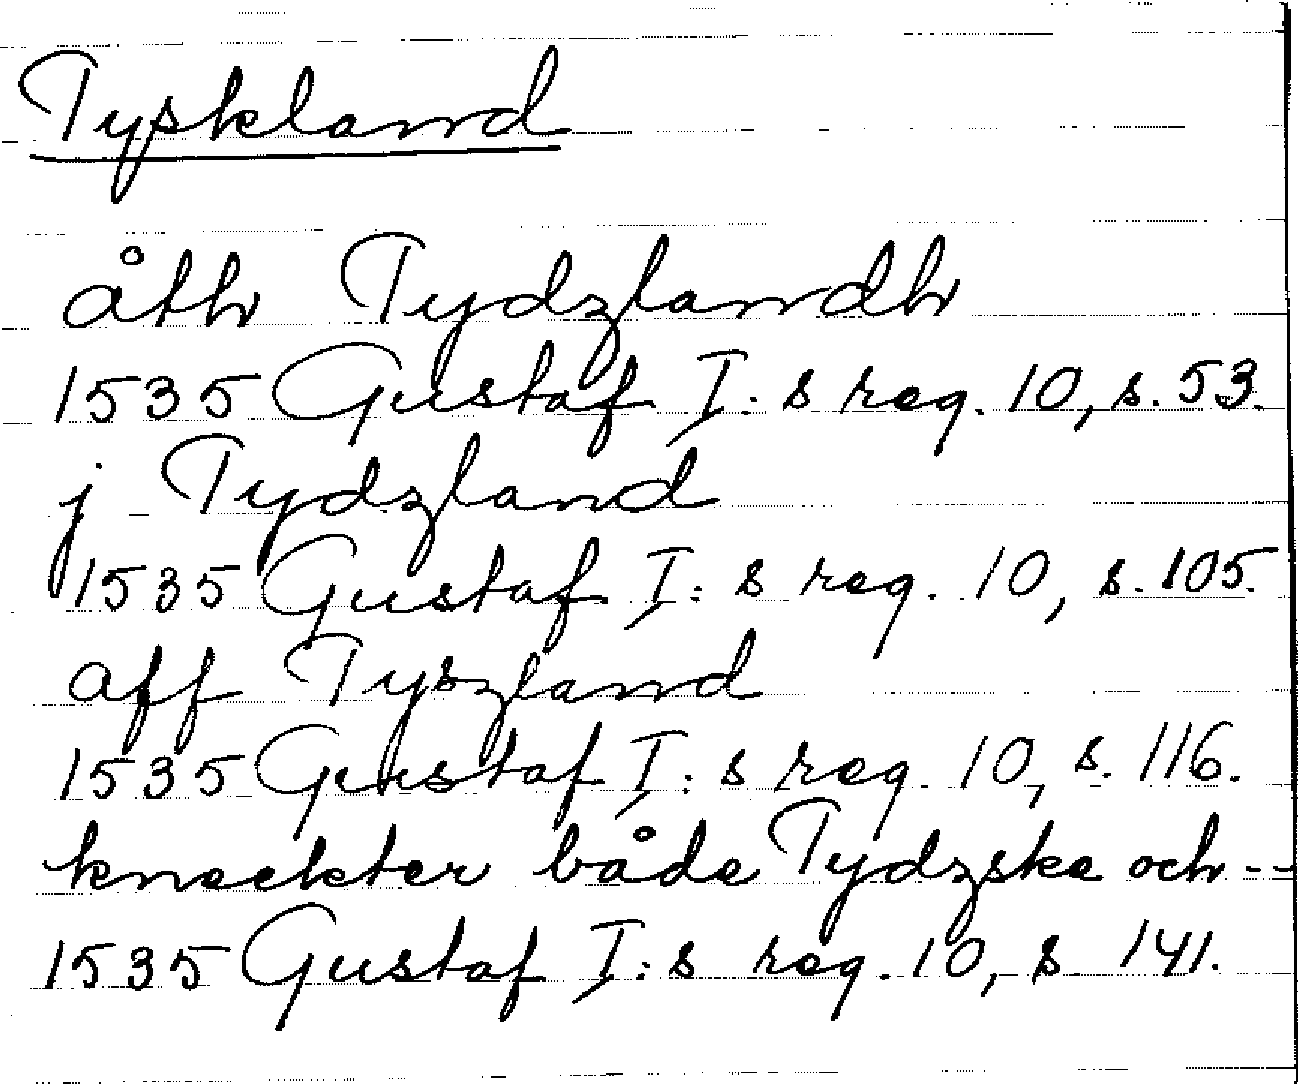 Tyskland
åth Tydzlandh
1535 Gustaf I:s reg. 10, s. 53.
j Tydzland
1535 Gustaf I:s reg. 10, s. 105.
aff Tyszland
1535 Gustaf I:s reg. 10, s. 116.
kneckter både Tydzske och --
1535 Gustaf I:s reg. 10, s 141.